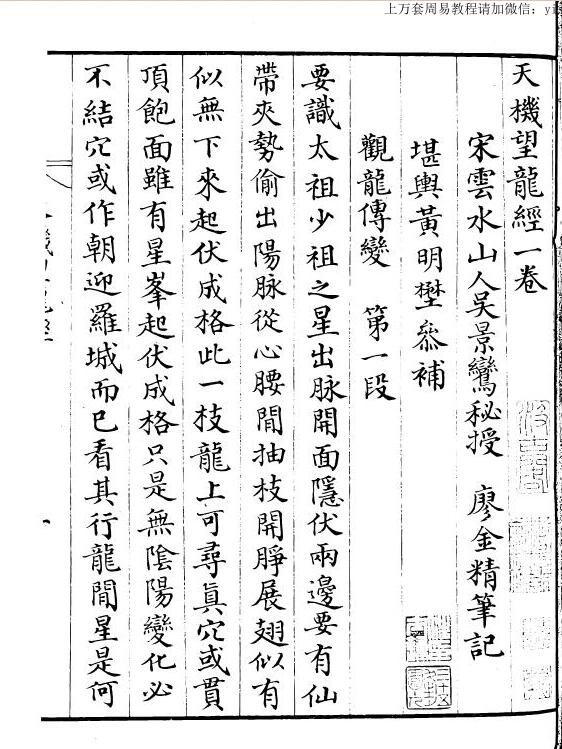 上万套周易教程请加微信：yi
天機望龍經一卷
宋雲水山人吴景鸞秘授　廖金精筆記
堪輿黃明㙯叅補
觀龍傳變　第一段
要識太祖少祖之星出脉開面隱伏兩邊要有仙
帶夾勢偷出陽脉從心腰間抽枝開睜展翅似有
似無下來起伏成格此一枝龍上可尋真穴或貫
頂飽面雖有星峯起伏成格只是無陰陽變化必
不結穴或作朝迎羅城而已看其行龍間星是何